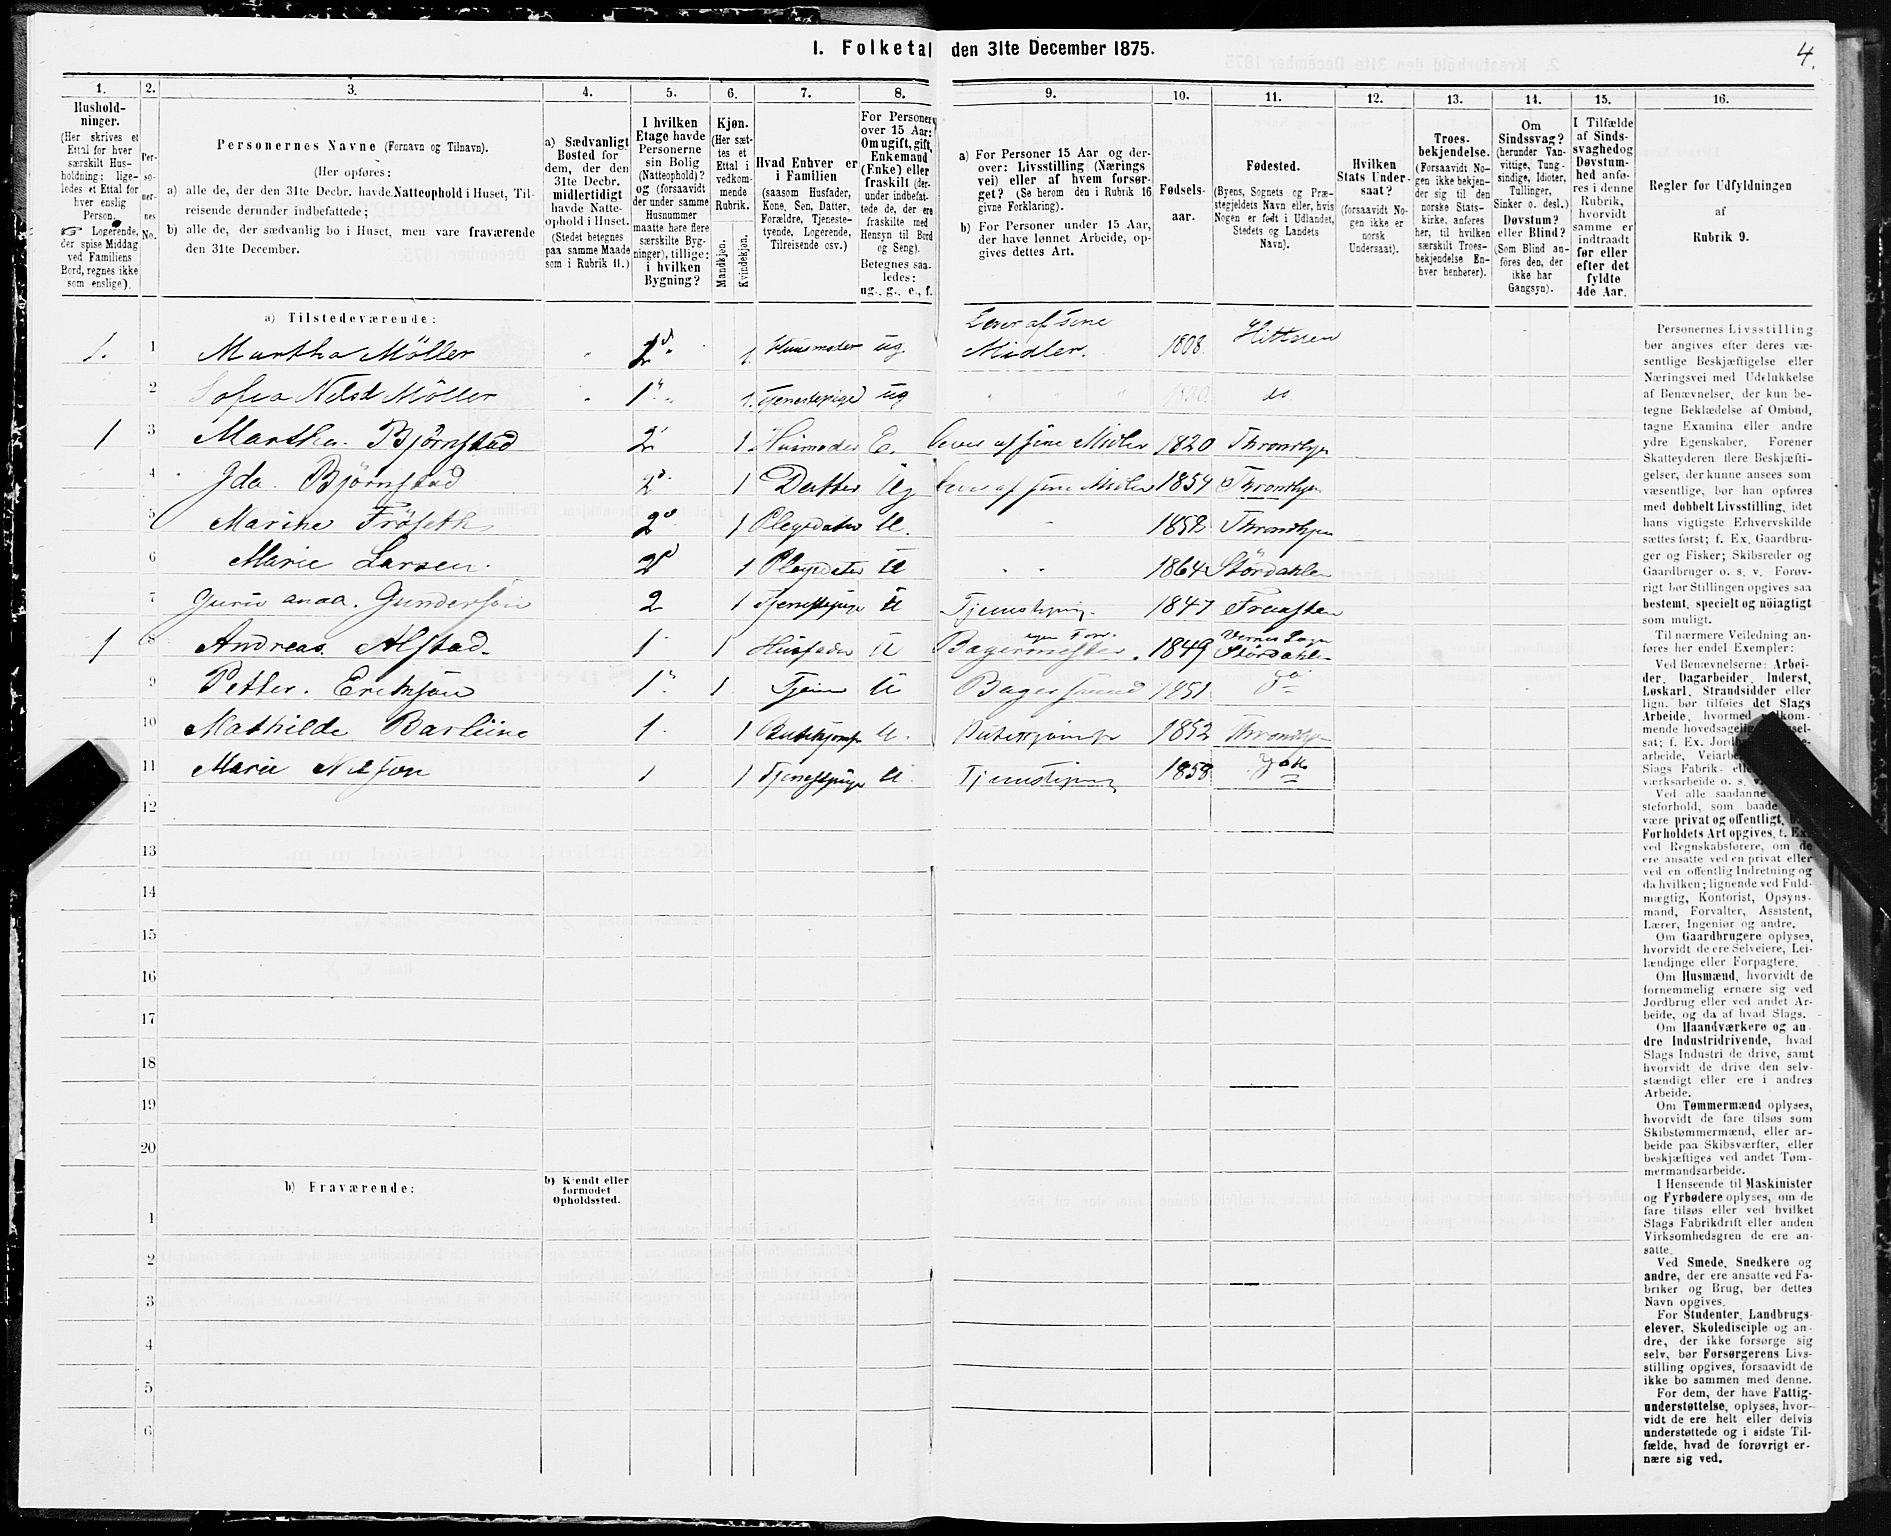 I. Folketal den 31te December 1875.
4.
1. 2. 3. 4. 5. 6. 7. 8. 9. 10. 11. 12. 13. 14. 15. 16.
Hushold-
ninger.
(Her skrives et
Ettal for hver
særskilt Hus-
holdning; lige-
ledes et Ettal for
hver enslig
Person.
☞ Logerende,
der spise Middag
ved Familiens
Bord, regnes ikke
som enslige).
Per-
so-
ner-
nes
No.
Personernes Navne (Fornavn og Tilnavn).
(Her opføres:
a) alle de, der den 31te Decbr. havde Natteophold i Huset, Til-
reisende derunder indbefattede;
b) alle de, der sædvanlig bo i Huset, men vare fraværende
den 31te December.
a) Sædvanligt
Bosted for
dem, der den
31te Decbr.
midlertidigt
havde Natte-
ophold i Huset.
(Stedet betegnes
paa samme Maade
som i Rubrik 11.)
I hvilken
Etage havde
Personerne
sin Bolig
(Natteophold)?
og (forsaavidt
der under samme
Husnummer
maatte høre flere
særskilte Byg-
ninger), tillige:
i hvilken
Bygning?
Kjøn.
(Her sæt-
tes et
Ettal i
vedkom-
mende
Rubrik.
Mandkjøn.
Kvindekjøn.
Hvad Enhver er
i Familien
(saasom Husfader,
Kone, Søn, Datter,
Forældre, Tjeneste-
tyende, Logerende,
Tilreisende osv.)
For Personer
over 15 Aar:
Om ugift, gift,
Enkemand
(Enke) eller
fraskilt (der-
under indbefat-
tede de, der ere
fraskilte med
Hensyn til Bord
og Seng).
Betegnes saa-
ledes:
ug., g., e., f.
a) For Personer 15 Aar og der-
over: Livsstilling (Nærings
vei) eller af hvem forsør-
get? (Se herom den i Rubrik 16
givne Forklaring).
b) For Personer under 15 Aar,
der have lønnet Arbeide, op-
gives dettes Art.
Fødsels-
aar.
Fødested.
(Byens, Sognets og Præ-
stegjeldets Navn eller, hvis
Nogen er født i Udlandet,
Stedets og Landets
Navn).
Hvilken
Stats Under-
saat?
(forsaavidt No-
gen ikke er
norsk
Undersaat).
Troes-
bekjendelse.
(Forsaavidt No-
gen ikke bekjen-
der sig til den
norske Stats-
kirke, anføres
her, til hvilken
særskilt Troes-
bekjendelse En-
hver henhører).
Om
Sindssvag?
(herunder Van-
vittige, Tung-
sindige, Idioter,
Tullinger,
Sinker o. desl.)
Døvstum?
eller Blind?
(Som Blind an-
føres den, der
ikke har
Gangsyn).
I Tilfælde
af Sinds-
svaghed og
Døvstum-
hed anfø-
res i denne
Rubrik,
hvorvidt
samme er
indtraadt
før eller
efter det
fyldte
4de Aar.
Regler for Udfyldningen
af
Rubrik 9.
a) Tilstedeværende:
1. 1 Martha Möller 2 1. Huusmoder ug Lever af sine Midler. 1808. Hitteren
2 Sofia Nilsd Möller 1 1. Tjenestepige ug do
1 3 Martha. Bjørnstad 2 1 Husmoder E. lever af sine Midler 1820 Throndhjem
4 Ida. Bjørnstad 2 1 Datter Ug lever af sine Midler 1854 Throndhjem
5 Marine Fröseth 2 1 Plegedatter U. 1858 Throndhjem
6 Marie Larsen. 2 1 Plegedatter U 1864 Stördahlen
7 Guru anaa. Gunderson 2 1 Tjenestepige U Tjenestepig. 1847 Fraasten
1 8 Andreas. Alstad. 1. 1 Husfader U Bagermester. 1849 Stördahlen
9 Petter. Erikson 1. 1 Tjen U Bagersvend 1851 Do
10 Mathilde Barliine 1. 1 U. Butikjomfr 1852 Throndhjem
11 Marie Nilson 1 1 Tjenestepige U. Tjenestepig 1858
12
13
14
15
16
17
18
19
20
b) Fraværende:
b) Kjendt eller
formodet
Opholdssted.
1
2
3
4
5
6
Personernes Livsstilling
bør angives efter deres væ-
sentlige Beskjæftigelse eller
Næringsvei med Udelukkelse
af Benævnelser, der kun be-
tegne Beklædelse af Ombud,
tagne Examina eller andre
ydre Egenskaber. Forener
Skatteyderen flere Beskjæfti-
gelser, der kunne ansees som
væsentlige, bør han opføres
med dobbelt Livsstilling, idet
hans vigtigste Erhvervskilde
sættes først; f. Ex. Gaardbru-
ger og Fisker; Skibsreder og
Gaardbruger o. s. v. Forøv-
rigt bør Stillingen opgives saa
bestemt, specielt og nøiagtigt
som muligt.
Til nærmere Veiledning an-
føres her endel Exempler:
Ved Benævnelserne: Arbei-
der, Dagarbeider, Inderst,
Løskarl, Strandsidder eller
lign. bør tilføies det Slags
Arbeide, hvormed
mende hovedsagelig
sat; f. Ex.
arbeide,
Slags Fabrik-
værksarbeide o. s. v.
Ved alle saadanne
steforhold, som baade
være privat og offentligt,
Forholdets Art opgives, t. Ex.
ved Regnskabsførere, om de
ere ansatte ved en privat eller
ved en offentlig Indretning og
da hvilken; lignende ved Fuld-
mægtig, Kontorist, Opsyns-
mand, Forvalter, Assistent,
Lærer, Ingeniør og andre.
Om Gaardbrugere oplyses,
hvorvidt de ere Selveiere, Lei-
lændinge eller Forpagtere.
Om Husmænd, hvorvidt de
fornemmelig ernære sig ved
Jordbrug eller ved andet Ar-
beide, og da af hvad Slags.
Om Haandværkere og an-
dre Industridrivende, hvad
Slags Industri de drive, samt
hvorvidt de drive den selv-
stændigt eller ere i andres
Arbeide.
Om Tømmermænd oplyses,
hvorvidt de fare tilsøs som
Skibstømmermænd, eller ar-
beide paa Skibsværfter, eller
beskjæftiges ved andet Tøm-
mermandsarbeide.
I Henseende til Maskinister
og Fyrbødere oplyses, om de
fare tilsøs eller ved hvilket
Slags Fabrikdrift eller anden
Virksomhedsgren de ere an-
satte.
Ved Smede, Snedkere og
andre, der ere ansatte ved Fa-
briker og Brug, bør dettes
Navn opgives.
For Studenter, Landbrugs-
elever, Skoledisciple og an-
dre, der ikke forsørge sig
selv, bør Forsørgerens Livs-
stilling opgives, forsaavidt de
ikke bo sammen med denne.
For dem, der have Fattig-
understøttelse, oplyses, hvor-
vidt de ere helt eller delvis
understøttede og i sidste Til-
fælde, hvad de forøvrigt er-
nære sig ved.